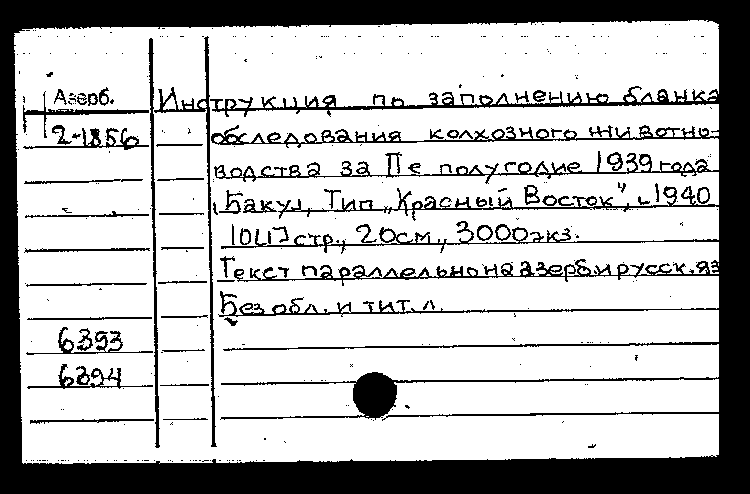 Азерб. Инструкция по заполнению бланка
2-1856 обследования колхозного животно-
водства за II е полугодие 1939 года
[Баку], Тип „Красный Восток", 1940
10[1]стр., 20см., 3000экз.
Текст параллельно на азерб.и русск.яз
Без обл. и тит. л.
6393
6394